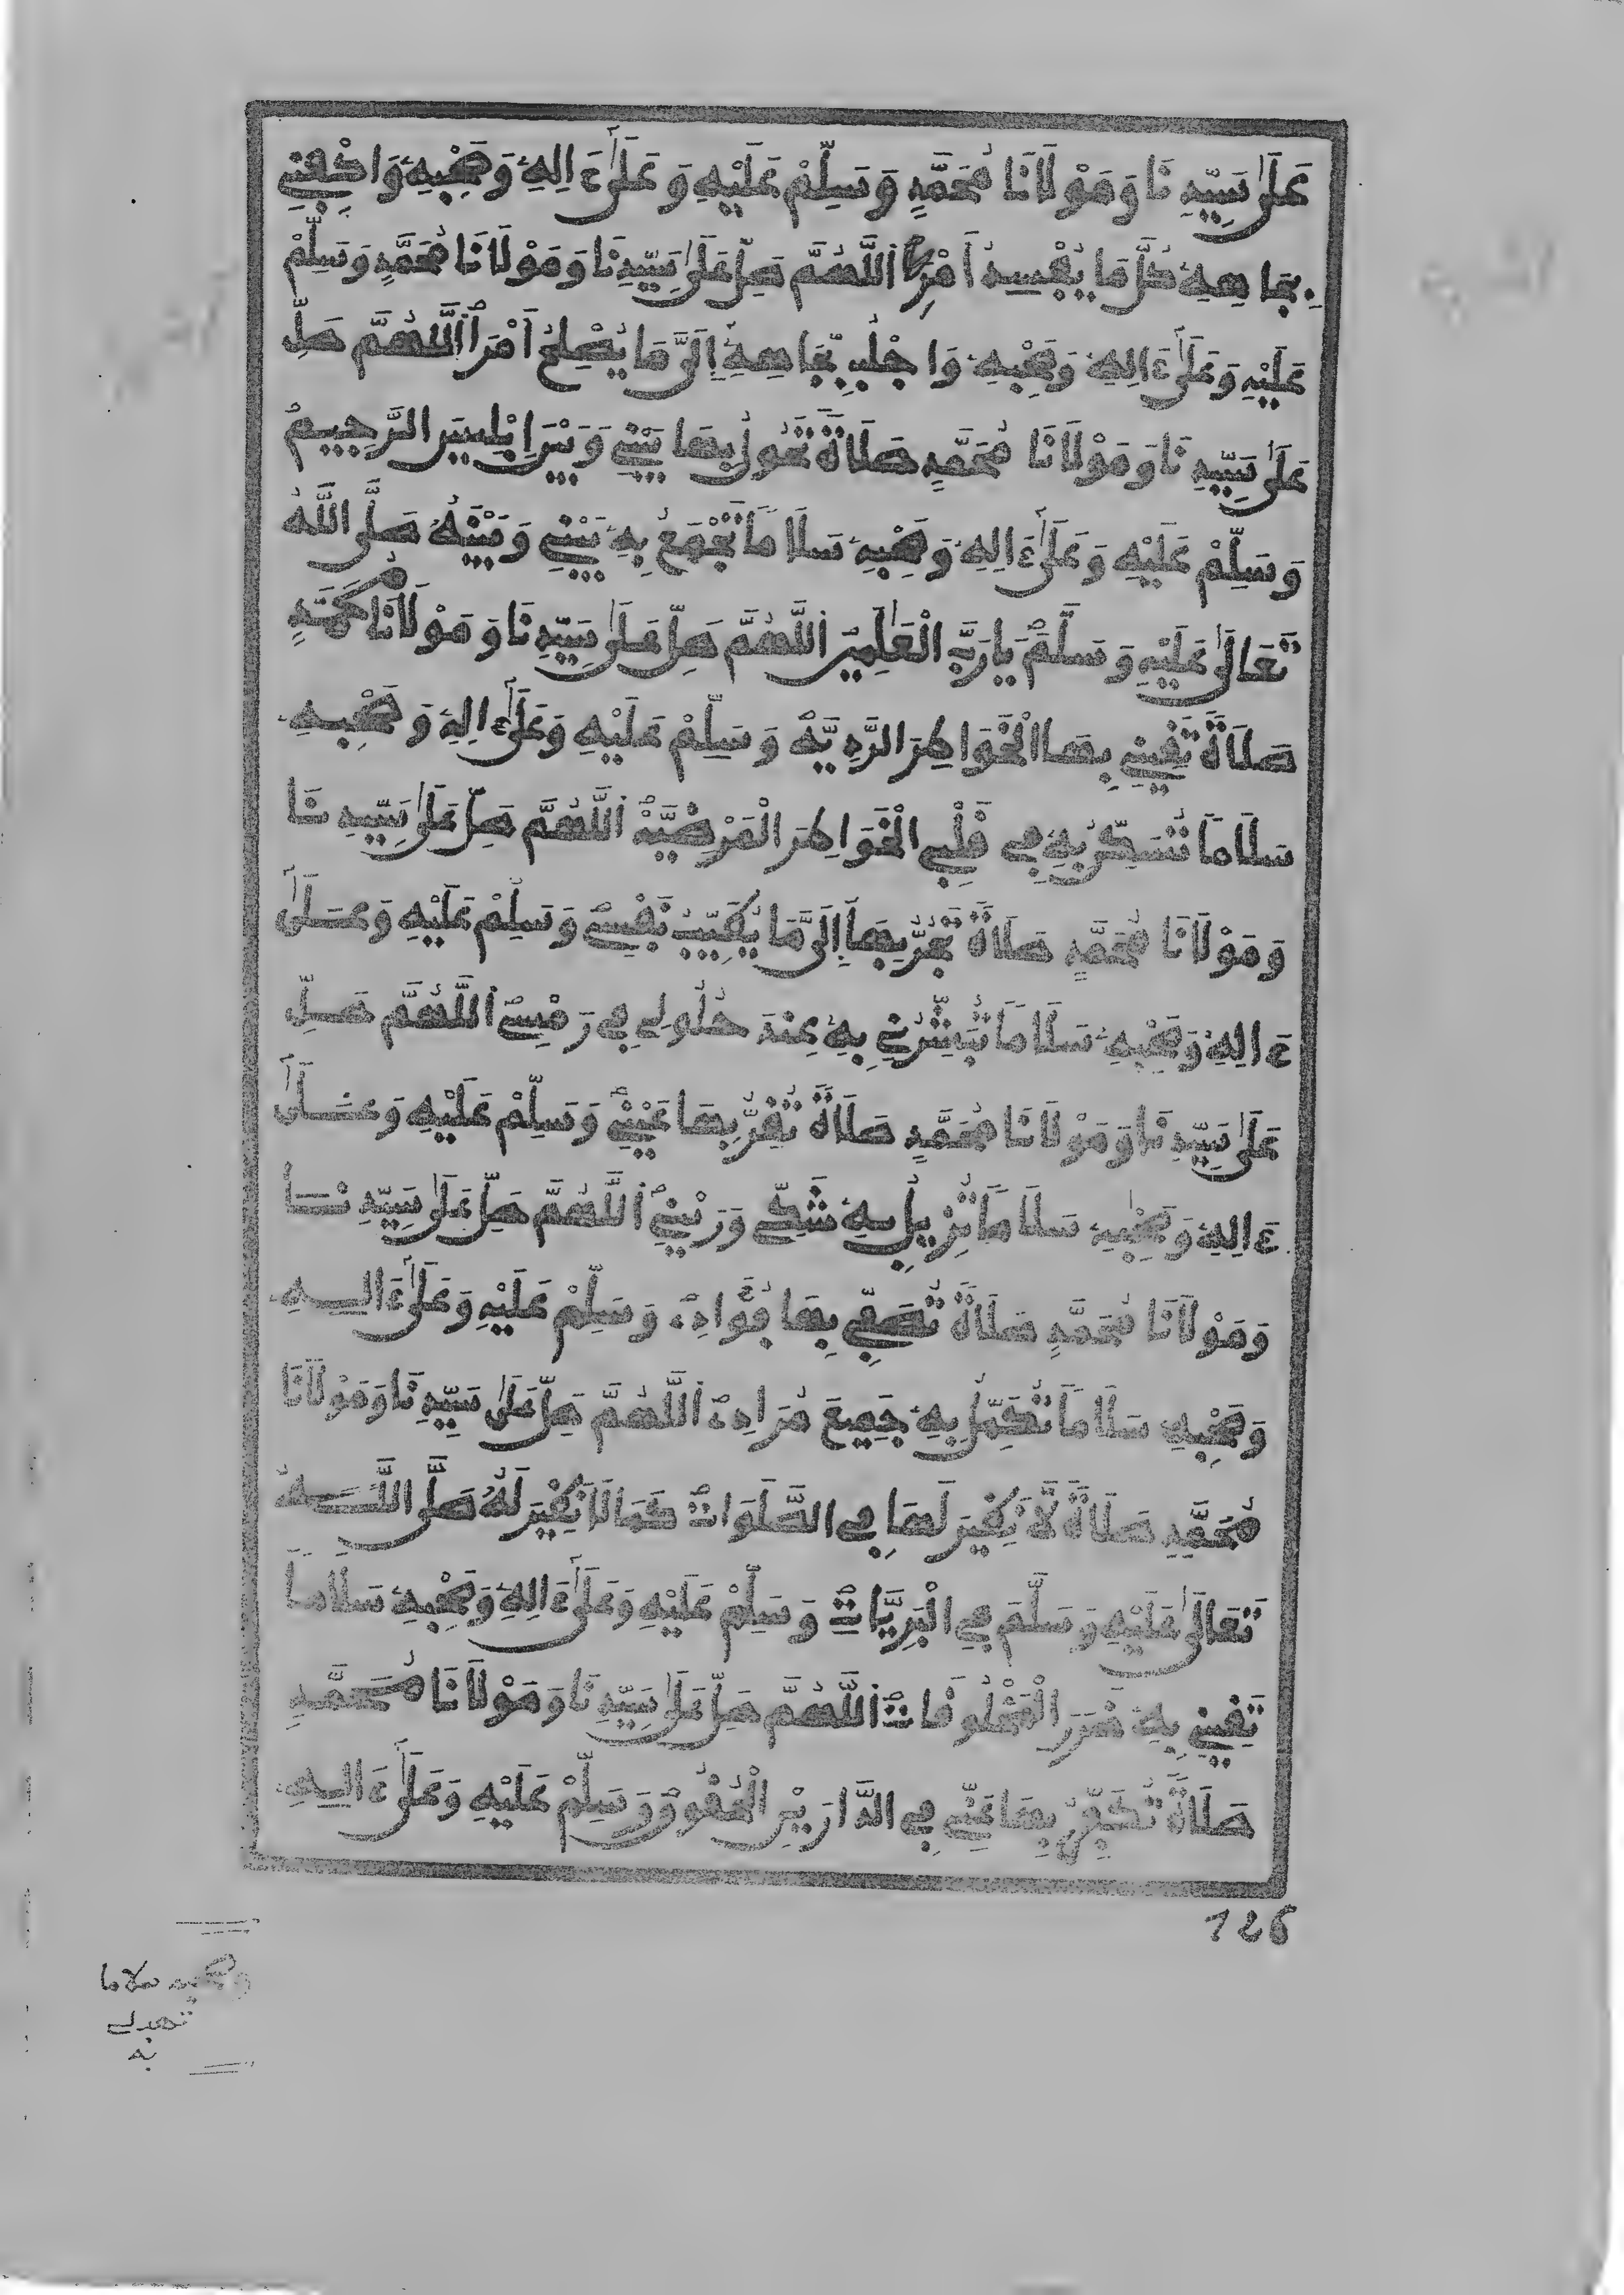 عَلَىٰ سَيِّدِنَا وَمَوْلَانَا مُحَمَّدٍ وَسَلِّمْ عَلَيْهِ وَعَلَىٰٓ ءَالِهِۦ وَصَحْبِهِۦ وَاكْفِنِے
بِجَاهِهِۦ كُلَّ مَا يُفْسِدُ أَمْرِے اَللَّهُمَّ صَلِّ عَلَىٰ سَيِّدِنَا وَمَوْلَانَا مُحَمَّدٍ وَسَلِّمْ
عَلَيْهِ وَعَلَىٰٓ ءَالِهِۦ وَصَحْبِهِۦ وَاجْلُبْ بِجَاهِهِۦٓ إِلَيَّ مَا يُصْلِحُ أَمْرِے اَللَّهُمَّ صَلِّ
عَلَىٰ سَيِّدِنَا وَمَوْلَانَا مُحَمَّدٍ صَلَاةً تَحُولُ بِهَا بَيْنِے وَبَيْنَ إِبْلِيسَ الرَّجِيمِ
وَسَلِّمْ عَلَيْهِ وَعَلَىٰٓ ءَالِهِۦ وَصَحْبِهِۦ سَلَاماً تَجْمَعُ بِهِۦ بَيْنِے وَبَيْنَهُۥ صَلَّى اللَّهُ
تَعَالَىٰ عَلَيْهِ وَسَلَّمَ يَا رَبَّ الْعَٰلَمِينَ اَللَّهُمَّ صَلِّ عَلَىٰ سَيِّدِنَا وَمَوْلَانَا مُحَمَّدٍ
صَلَاةً تَقِينِے بِهَا الْخَوَاطِرَ الرَّدِيَّةْ وَسَلِّمْ عَلَيْهِ وَعَلَىٰٓ ءَالِهِۦ وَصَحْبِهِۦ
سَلَاماً تُسَكِّنُ بِهِۦ فِے قَلْبِے الْخَوَاطِرَ الْمَرْضِيَّةْ اَللَّهُمَّ صَلِّ عَلَىٰ سَيِّدِنَا
وَمَوْلَانَا مُحَمَّدٍ صَلَاةً تَجُرُّ بِهَآ إِلَيَّ مَا يُطَيِّبُ نَفْسِے وَسَلِّمْ عَلَيْهِ وَعَلَىٰٓ
ءَالِهِۦ وَصَحْبِهِۦ سَلَاماً تُبَشِّرُنِے بِهِۦ عِندَ حُلُولِے فِے رَمْسِے اَللَّهُمَّ صَلِّ
عَلَىٰ سَيِّدِنَا وَمَوْلَانَا مُحَمَّدٍ صَلَاةً تُقِرُّ بِهَا عَيْنِے وَسَلِّمْ عَلَيْهِ وَعَلَىٰٓ
ءَالِهِۦ وَصَحْبِهِۦ سَلَاماً تُزِيلُ بِهِۦ شَكِّے وَرَيْنِے اَللَّهُمَّ صَلِّ عَلَىٰ سَيِّدِنَا
وَمَوْلَانَا مُحَمَّدٍ صَلَاةً تُصَفِّے بِهَا فُؤَادِے وَسَلِّمْ عَلَيْهِ وَعَلَىٰٓ ءَالِهِۦ
وَصَحْبِهِۦ سَلَاماً تُكَمِّلُ بِهِۦ جَمِيعَ مُرَادِے اَللَّهُمَّ صَلِّ عَلَىٰ سَيِّدِنَا وَمَوْلَانَا
مُحَمَّدٍ صَلَاةً لَّا نَظِيرَ لَهَا فِے الصَّلَوَاتْ كَمَا لَا نَظِيرَ لَهُۥ صَلَّى اللَّهُ
تَعَالَىٰ عَلَيْهِ وَسَلَّمَ فِے الْبَرِيَّاتْ وَسَلِّمْ عَلَيْهِ وَعَلَىٰٓ ءَالِهِۦ وَصَحْبِهِۦ سَلَاماً
تَقِينِے بِهِۦ ضَرَرَ الْمَخْلُوقَاتْ اَللَّهُمَّ صَلِّ عَلَىٰ سَيِّدِنَا وَمَوْلَانَا مُحَمَّدٍ
صَلَاةً تُكَفِّرُ بِهَا عَنِّے فِے الدَّارَيْنِ الْعُقُوقْ وَسَلِّمْ عَلَيْهِ وَعَلَىٰٓ ءَالِهِۦ
126
وصحبه سلاما
تهب لے
به